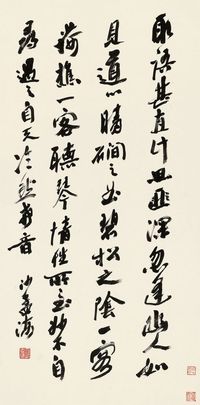 取语甚直计思匪深忽逢幽人如
见道心晴磵之曲碧松之阴一客
荷樵一客听琴情性所至妙不自
寻遇之自天泠然希音 沙孟海